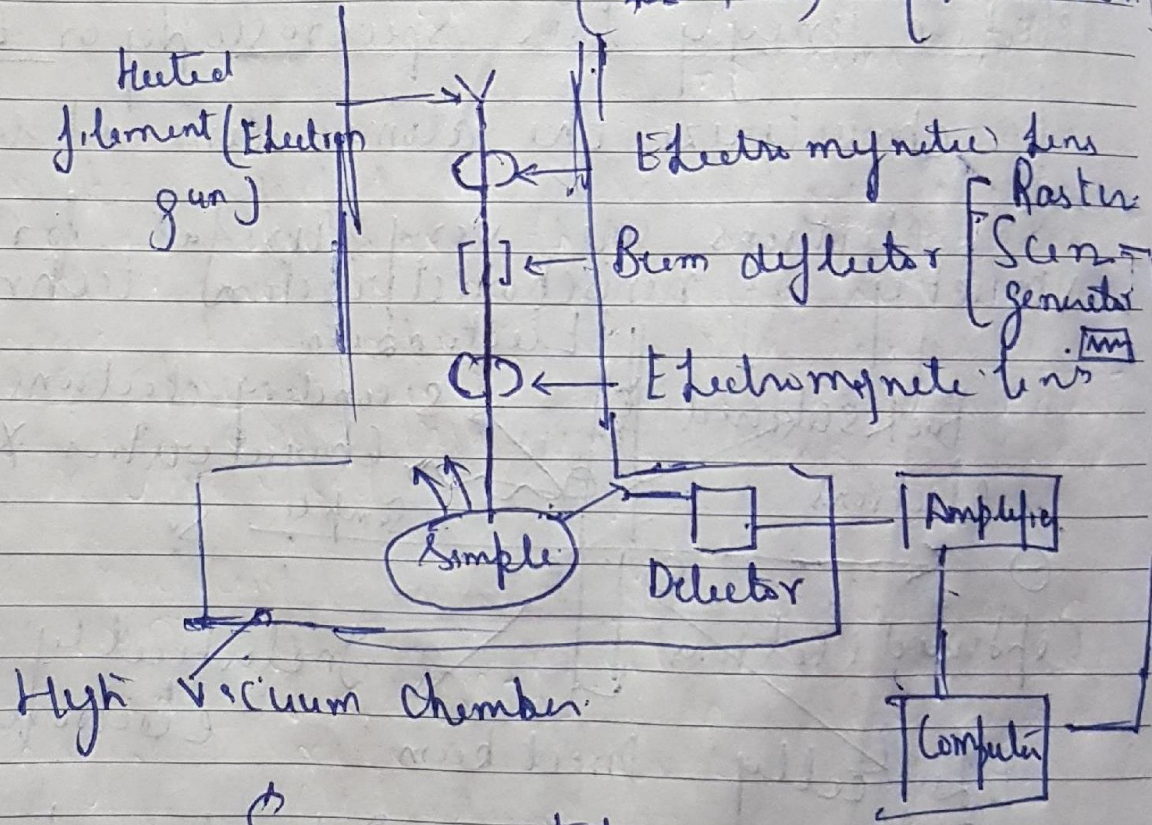 Heated
filement (Electron
gun)
Electromegnetic lens
Beam deflector [Raster
Scan-
generator
Electromegnetic lens
Sample
Detector
Amplifier
High Vacuum Chamber.
Computer